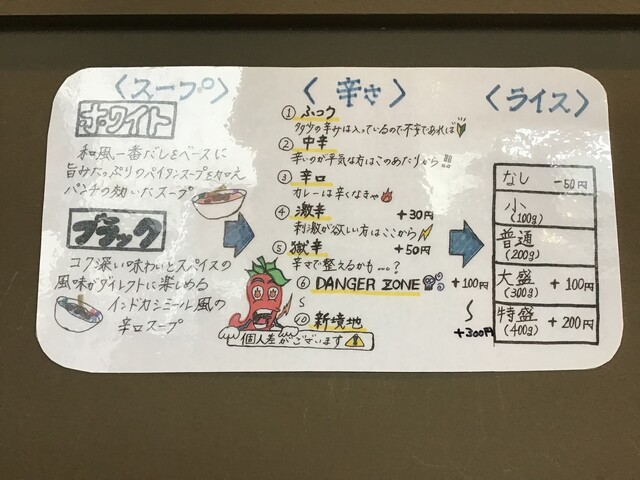 〈スープ〉
ホワイト
和風一番だしをベースに
旨みたっぷりのパイタンスープを加え
パンチの効いたスープ
ブラック
コク深い味わいとスパイスの
風味がダイレクトに楽しめる
インドカシミール風の
辛口スープ
〈辛さ〉
① ふつう
多少の辛みは入っているので不安であれば
② 中辛
辛いのが平気な方はこのあたりから
③ 辛口
カレーは辛くなきゃ
④ 激辛 +30円
刺激が欲しい方はここから
⑤ 獄辛 +50円
辛さで整えるかも…?
⑥ DANGER ZONE +100円
〜
⑩ 新境地 +300円
個人差がございます
〈ライス〉
なし -50円
小
(100g)
普通
(200g)
大盛 +100円
(300g)
特盛 +200円
(400g)